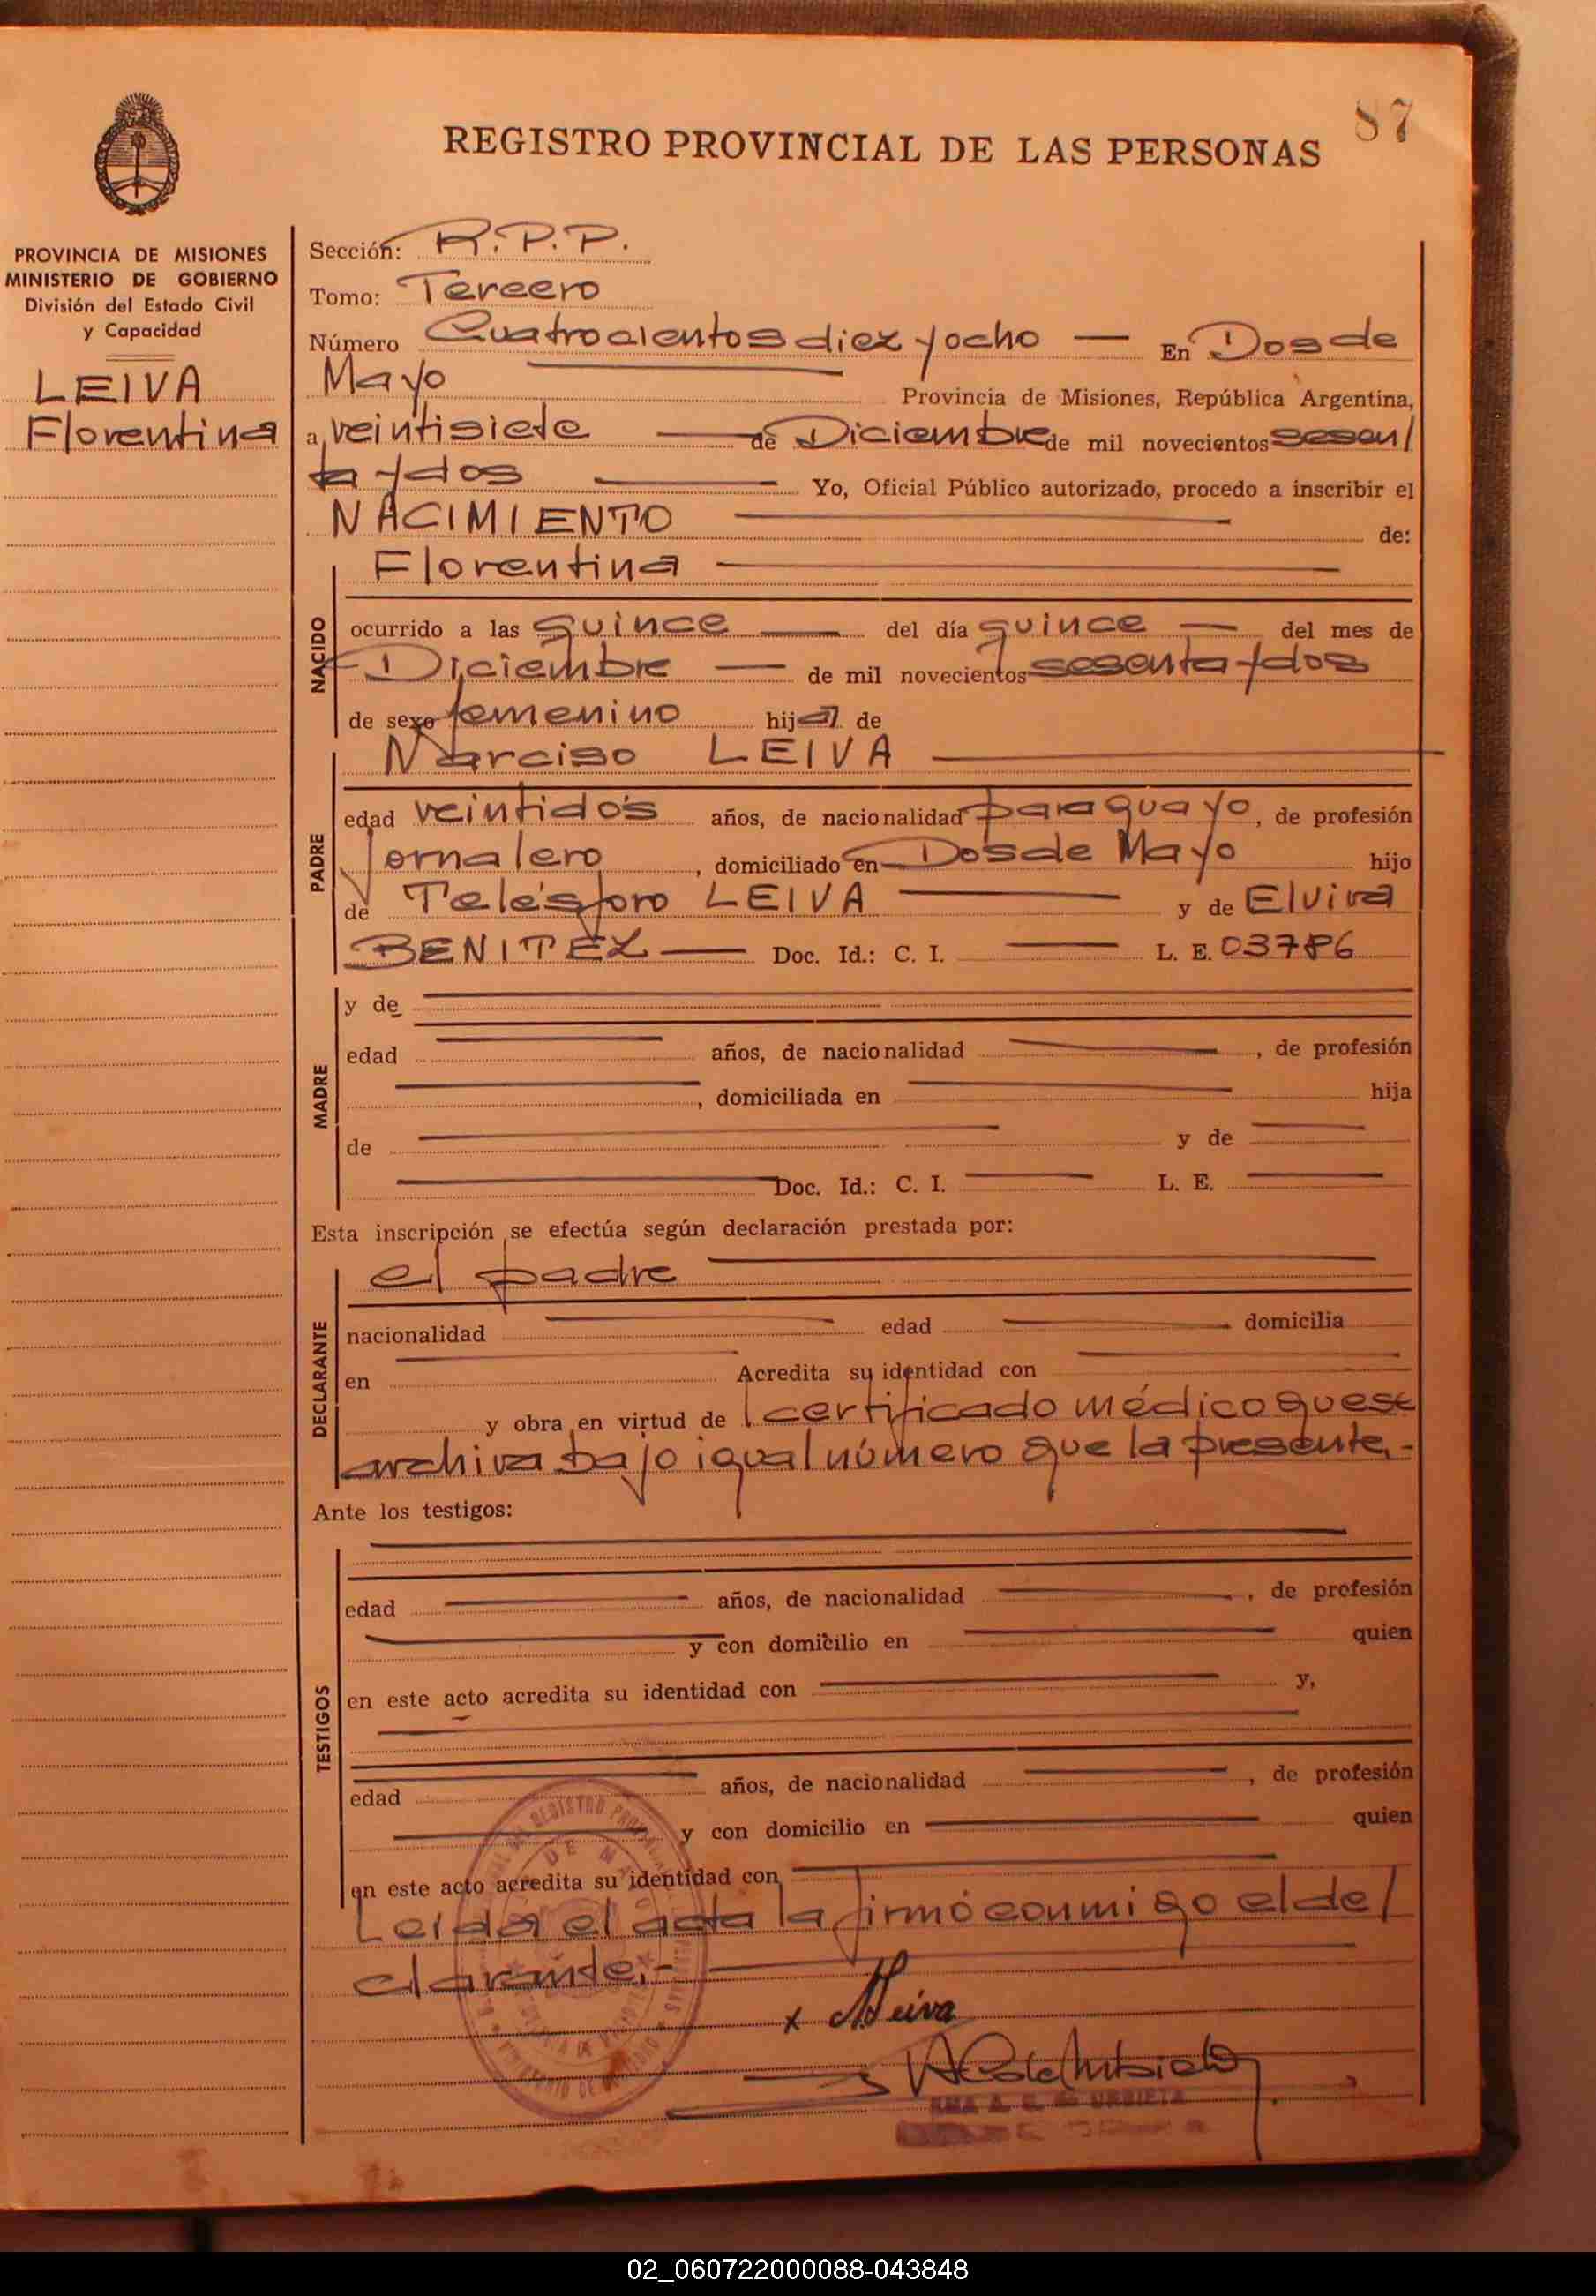 87
REGISTRO PROVINCIAL DE LAS PERSONAS
PROVINCIA DE MISIONES
MINISTERIO DE GOBIERNO
División del Estado Civil
y Capacidad
LEIVA
Florentina
Sección: R.P.P.
Tomo: Tercero
Número Cuatrocientos diez y ocho — En Dos de
Mayo Provincia de Misiones, República Argentina,
a veintisiete — de Diciembre de mil novecientos sesen/
ta y dos — Yo, Oficial Público autorizado, procedo a inscribir el
NACIMIENTO — de:
Florentina —
NACIDO
ocurrido a las quince — del día quince — del mes de
Diciembre — de mil novecientos sesenta y dos
de sexo femenino hija de
Narciso LEIVA —
PADRE
edad veintidós años, de nacionalidad paraguayo, de profesión
Jornalero, domiciliado en Dos de Mayo hijo
de Telésforo LEIVA — y de Elvira
BENITEZ — Doc. Id.: C. I. — L. E. 03786
MADRE
y de —
edad — años, de nacionalidad —, de profesión
—, domiciliada en — hija
de — y de —
— Doc. Id.: C. I. — L. E. —
Esta inscripción se efectúa según declaración prestada por:
el padre —
DECLARANTE
nacionalidad — edad — domicilia
en — Acredita su identidad con —
y obra en virtud de certificado médico que se
archiva bajo igual número que la presente.-
Ante los testigos:
TESTIGOS
edad — años, de nacionalidad —, de profesión
— y con domicilio en — quien
en este acto acredita su identidad con — y,
edad — años, de nacionalidad —, de profesión
— y con domicilio en — quien
en este acto acredita su identidad con —
Leída el acta la firmó conmigo el de/
clarante.- —
x N. Leiva
URBIETA
02_060722000088-043848